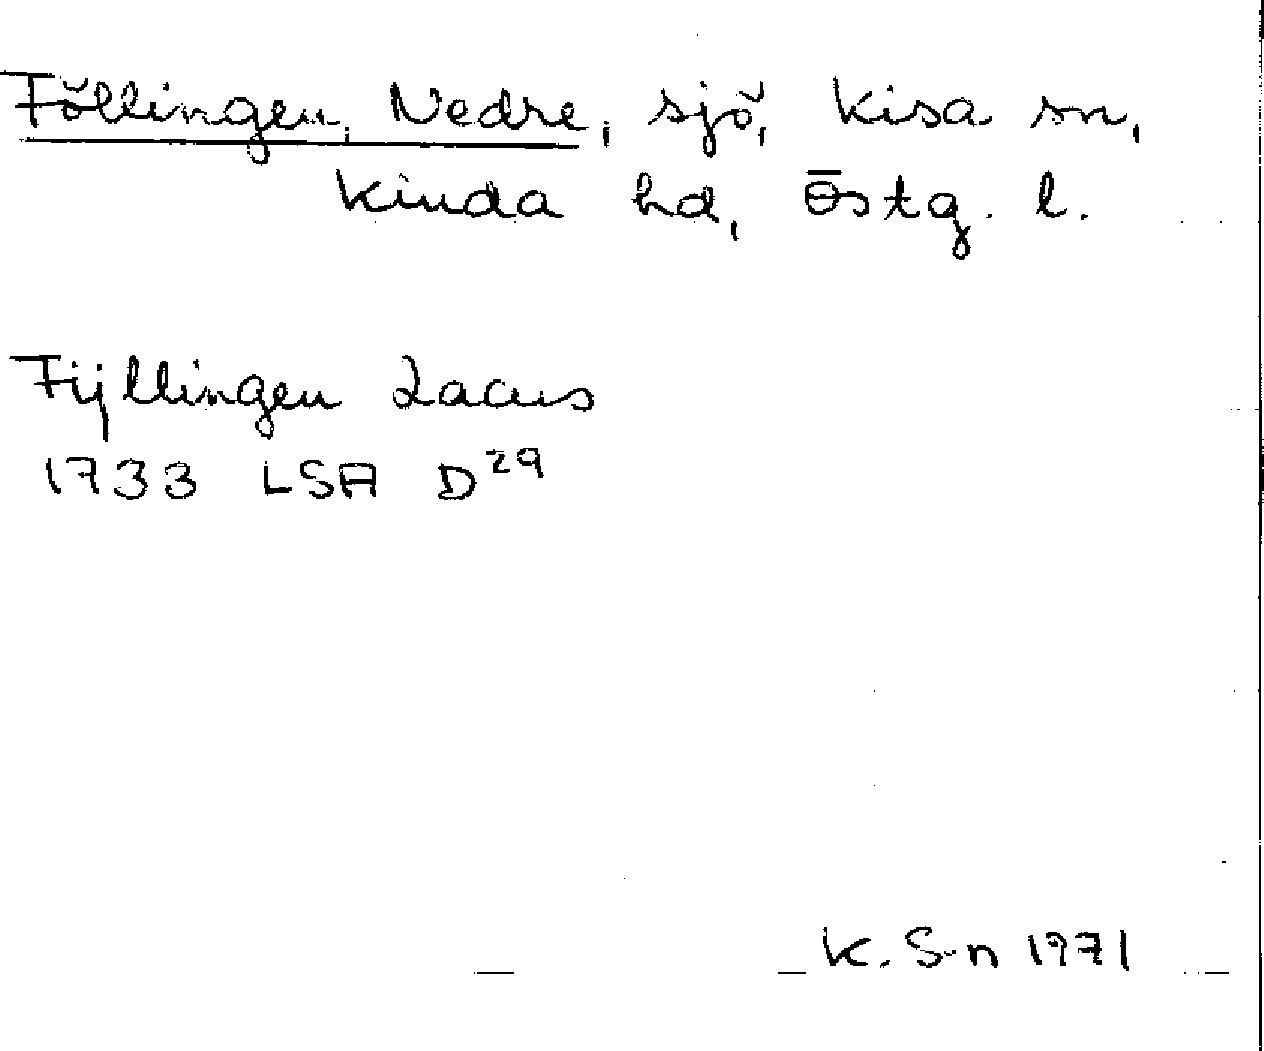 Föllingen, Nedre, sjö, Kisa sn,
Kinda hd, Östg. l.
Fijllingen Lacus
1733 LSA D29
K. S-n 1971